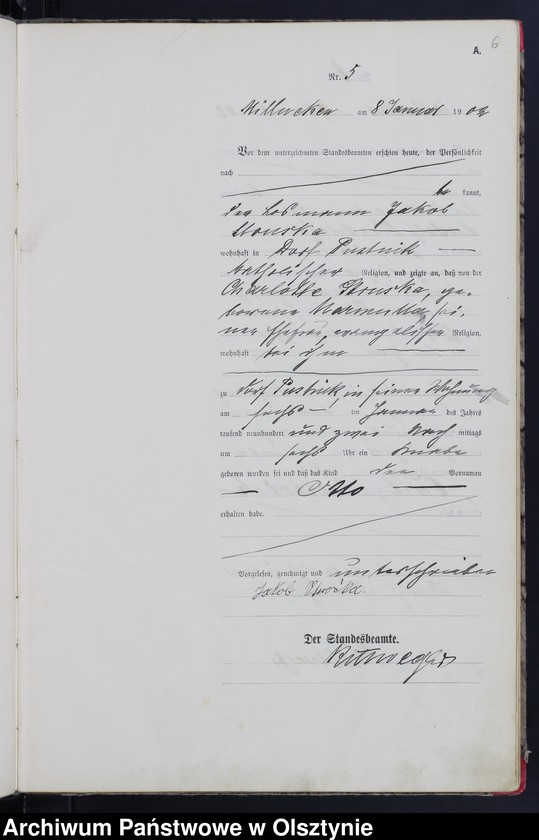 6
A.
Nr. 5
am 8 Januar 1902
Vor dem unterzeichneten Standesbeamten erschien heute, der Persönlichkeit
nach
be kannt,
der Losmann Jakob
wohnhaft in Dorf Pustnik
katholischer Religion, und zeigte an, daß von der
Charlotte ge-
borene sei-
ner Ehefrau, evangelischer Religion,
wohnhaft bei ihm
zu Dorf Pustnik, in seiner Wohnung
am sechs ten Januar des Jahres
tausend neunhundert und zwei Nach mittags
um sechs Uhr ein Knabe
geboren worden sei und daß das Kind den Vornamen
Otto
erhalten habe.
Vorgelesen, genehmigt und unterschrieben
Jakob
Der Standesbeamte.
Archiwum Państwowe w Olsztynie